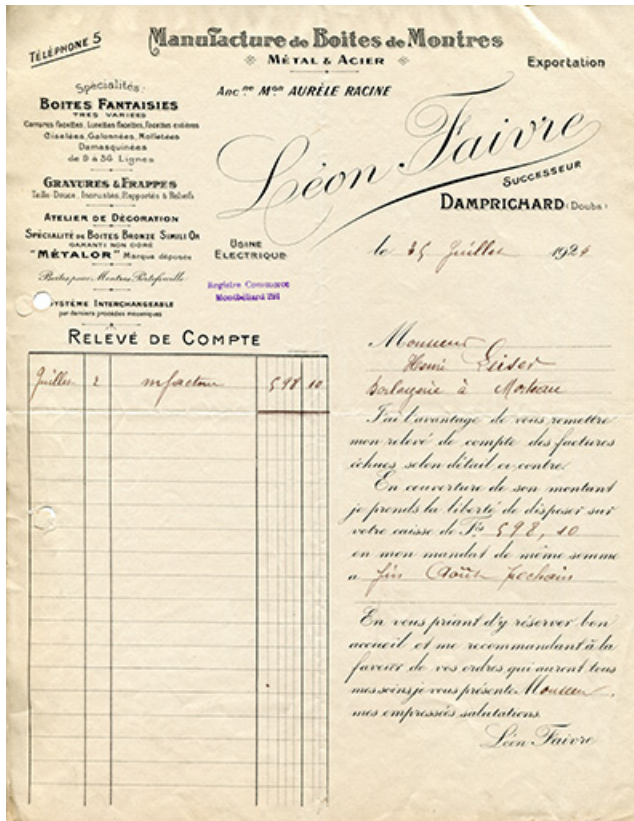 TÉLÉPHONE 5
Manufacture de Boites de Montres
MÉTAL & ACIER
Exportation
Ancne Mson AURÈLE RACINE
Léon Faivre
SUCCESSEUR
DAMPRICHARD (Doubs)
Spécialités:
BOITES FANTAISIES
TRÈS VARIÉES
Carrures facettes, Lunettes facettes, Facettes entières
Ciselées, Galonnées, Molletées
Damasquinées
de 9 à 36 Lignes
GRAVURES & FRAPPES
Taille-Douce, Incrustés, Rapportés & Reliefs
ATELIER DE DÉCORATION
SPÉCIALITÉ DE BOITES BRONZE SIMILI OR
GARANTI NON DORÉ
"MÉTALOR" Marque déposée
Boites pour Montres Portefeuille
SYSTÈME INTERCHANGEABLE
par derniers procédés mécaniques
USINE
ELECTRIQUE
Registre Commerce
Montbéliard
le 25 Juillet 192
RELEVÉ DE COMPTE
Juillet 2 m/facture 598 10
Monsieur
Henri Leiser
Horlogerie à Morteau
J'ai l'avantage de vous remettre
mon relevé de compte des factures
échues selon détail ci-contre.
En couverture de son montant
je prends la liberté de disposer sur
votre caisse de Frs 598,10
en mon mandat de même somme
a fin Août prochain
En vous priant d'y réserver bon
accueil et me recommandant à la
faveur de vos ordres qui auront tous
mes soins, je vous présente Monsieur,
mes empressées salutations.
Léon Faivre